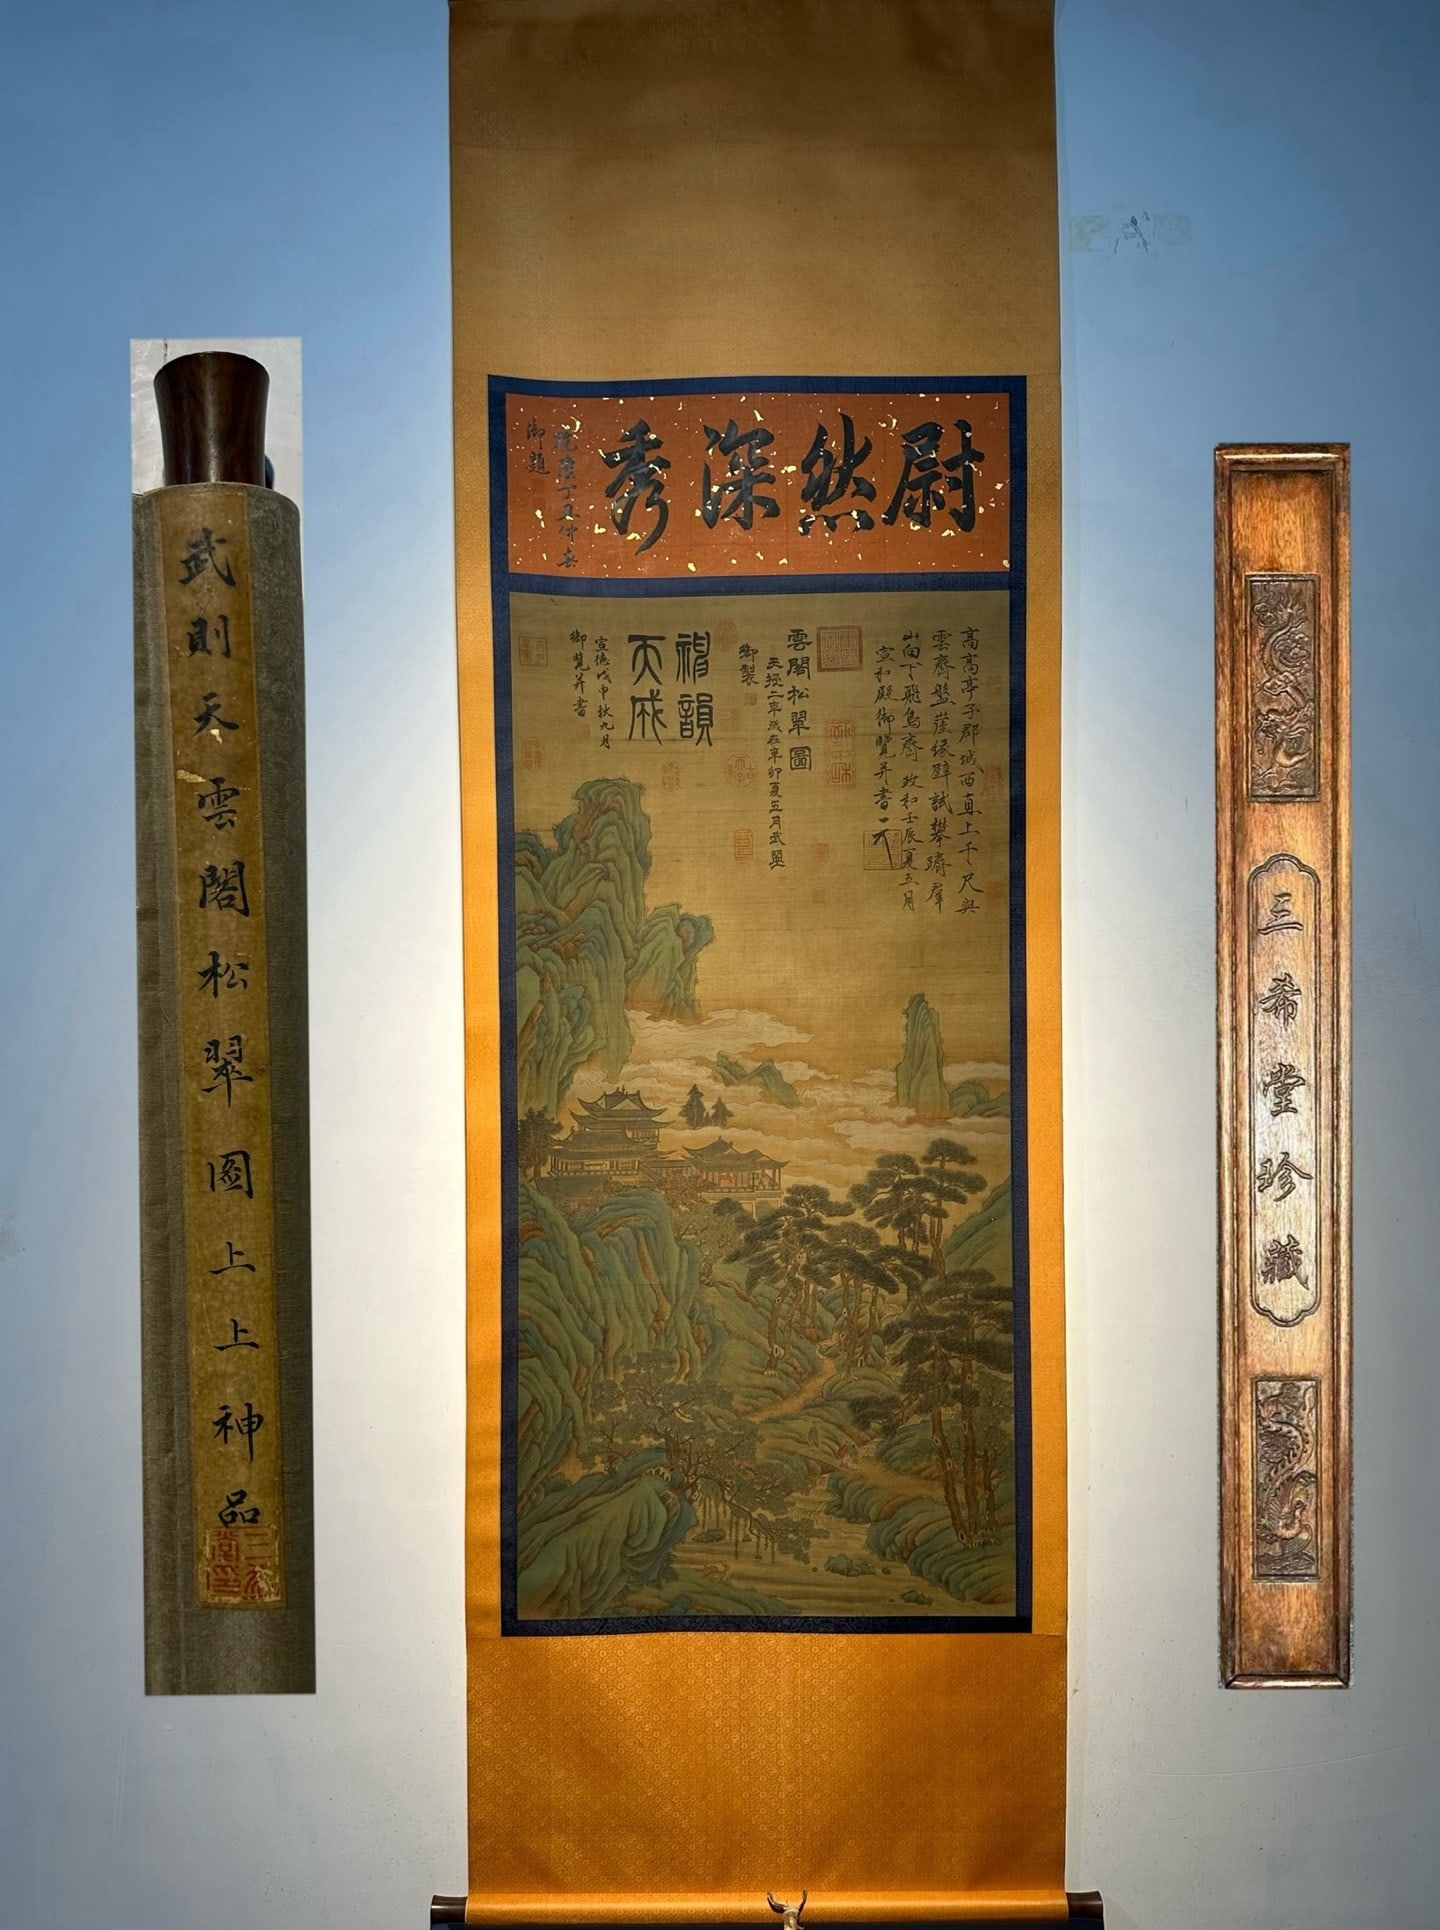 尉然深秀
乾隆丁丑仲春
御題
高高亭子郡城西直上千尺與
雲齊盤崖緣壁試攀躋羣
山向下飛鳥齊 政和壬辰夏五月
宣和殿御覽并書
雲閣松翠圖
天授二年歲在辛卯夏五月武曌
御製
神韻
天成
宣德戊申秋九月
御覽并書
武則天雲閣松翠圖上上神品
三希堂珍藏